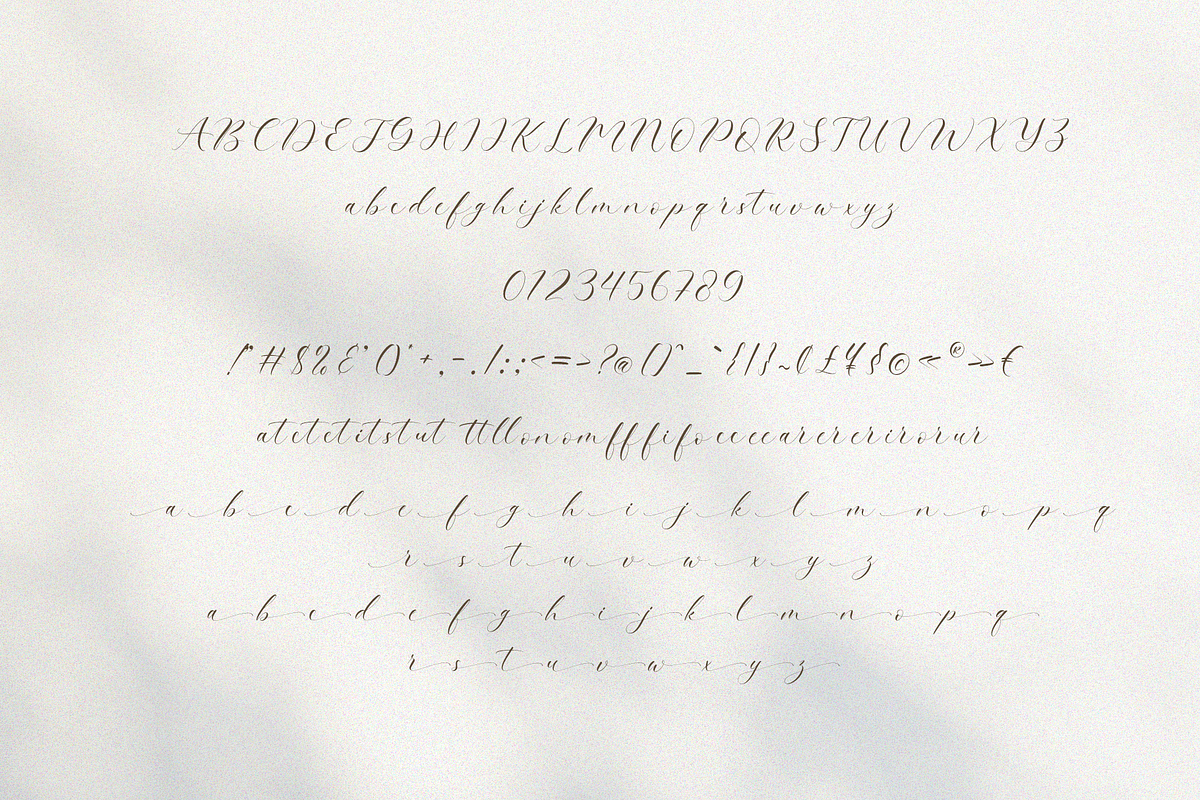 ABCDEFGHIJKLMNOPQRSTUVWXYZ
abcdefghijklmnopqrstuvwxyz
0123456789
!"#$%&'()*+,-./:;<=>?@()^_`{|}~¢£¥§©«®»€
atctetitstut ttllonomfffifoccecarcrerirorur
a b c d e f g h i j k l m n o p q
r s t u v w x y z
a b c d e f g h i j k l m n o p q
r s t u v w x y z